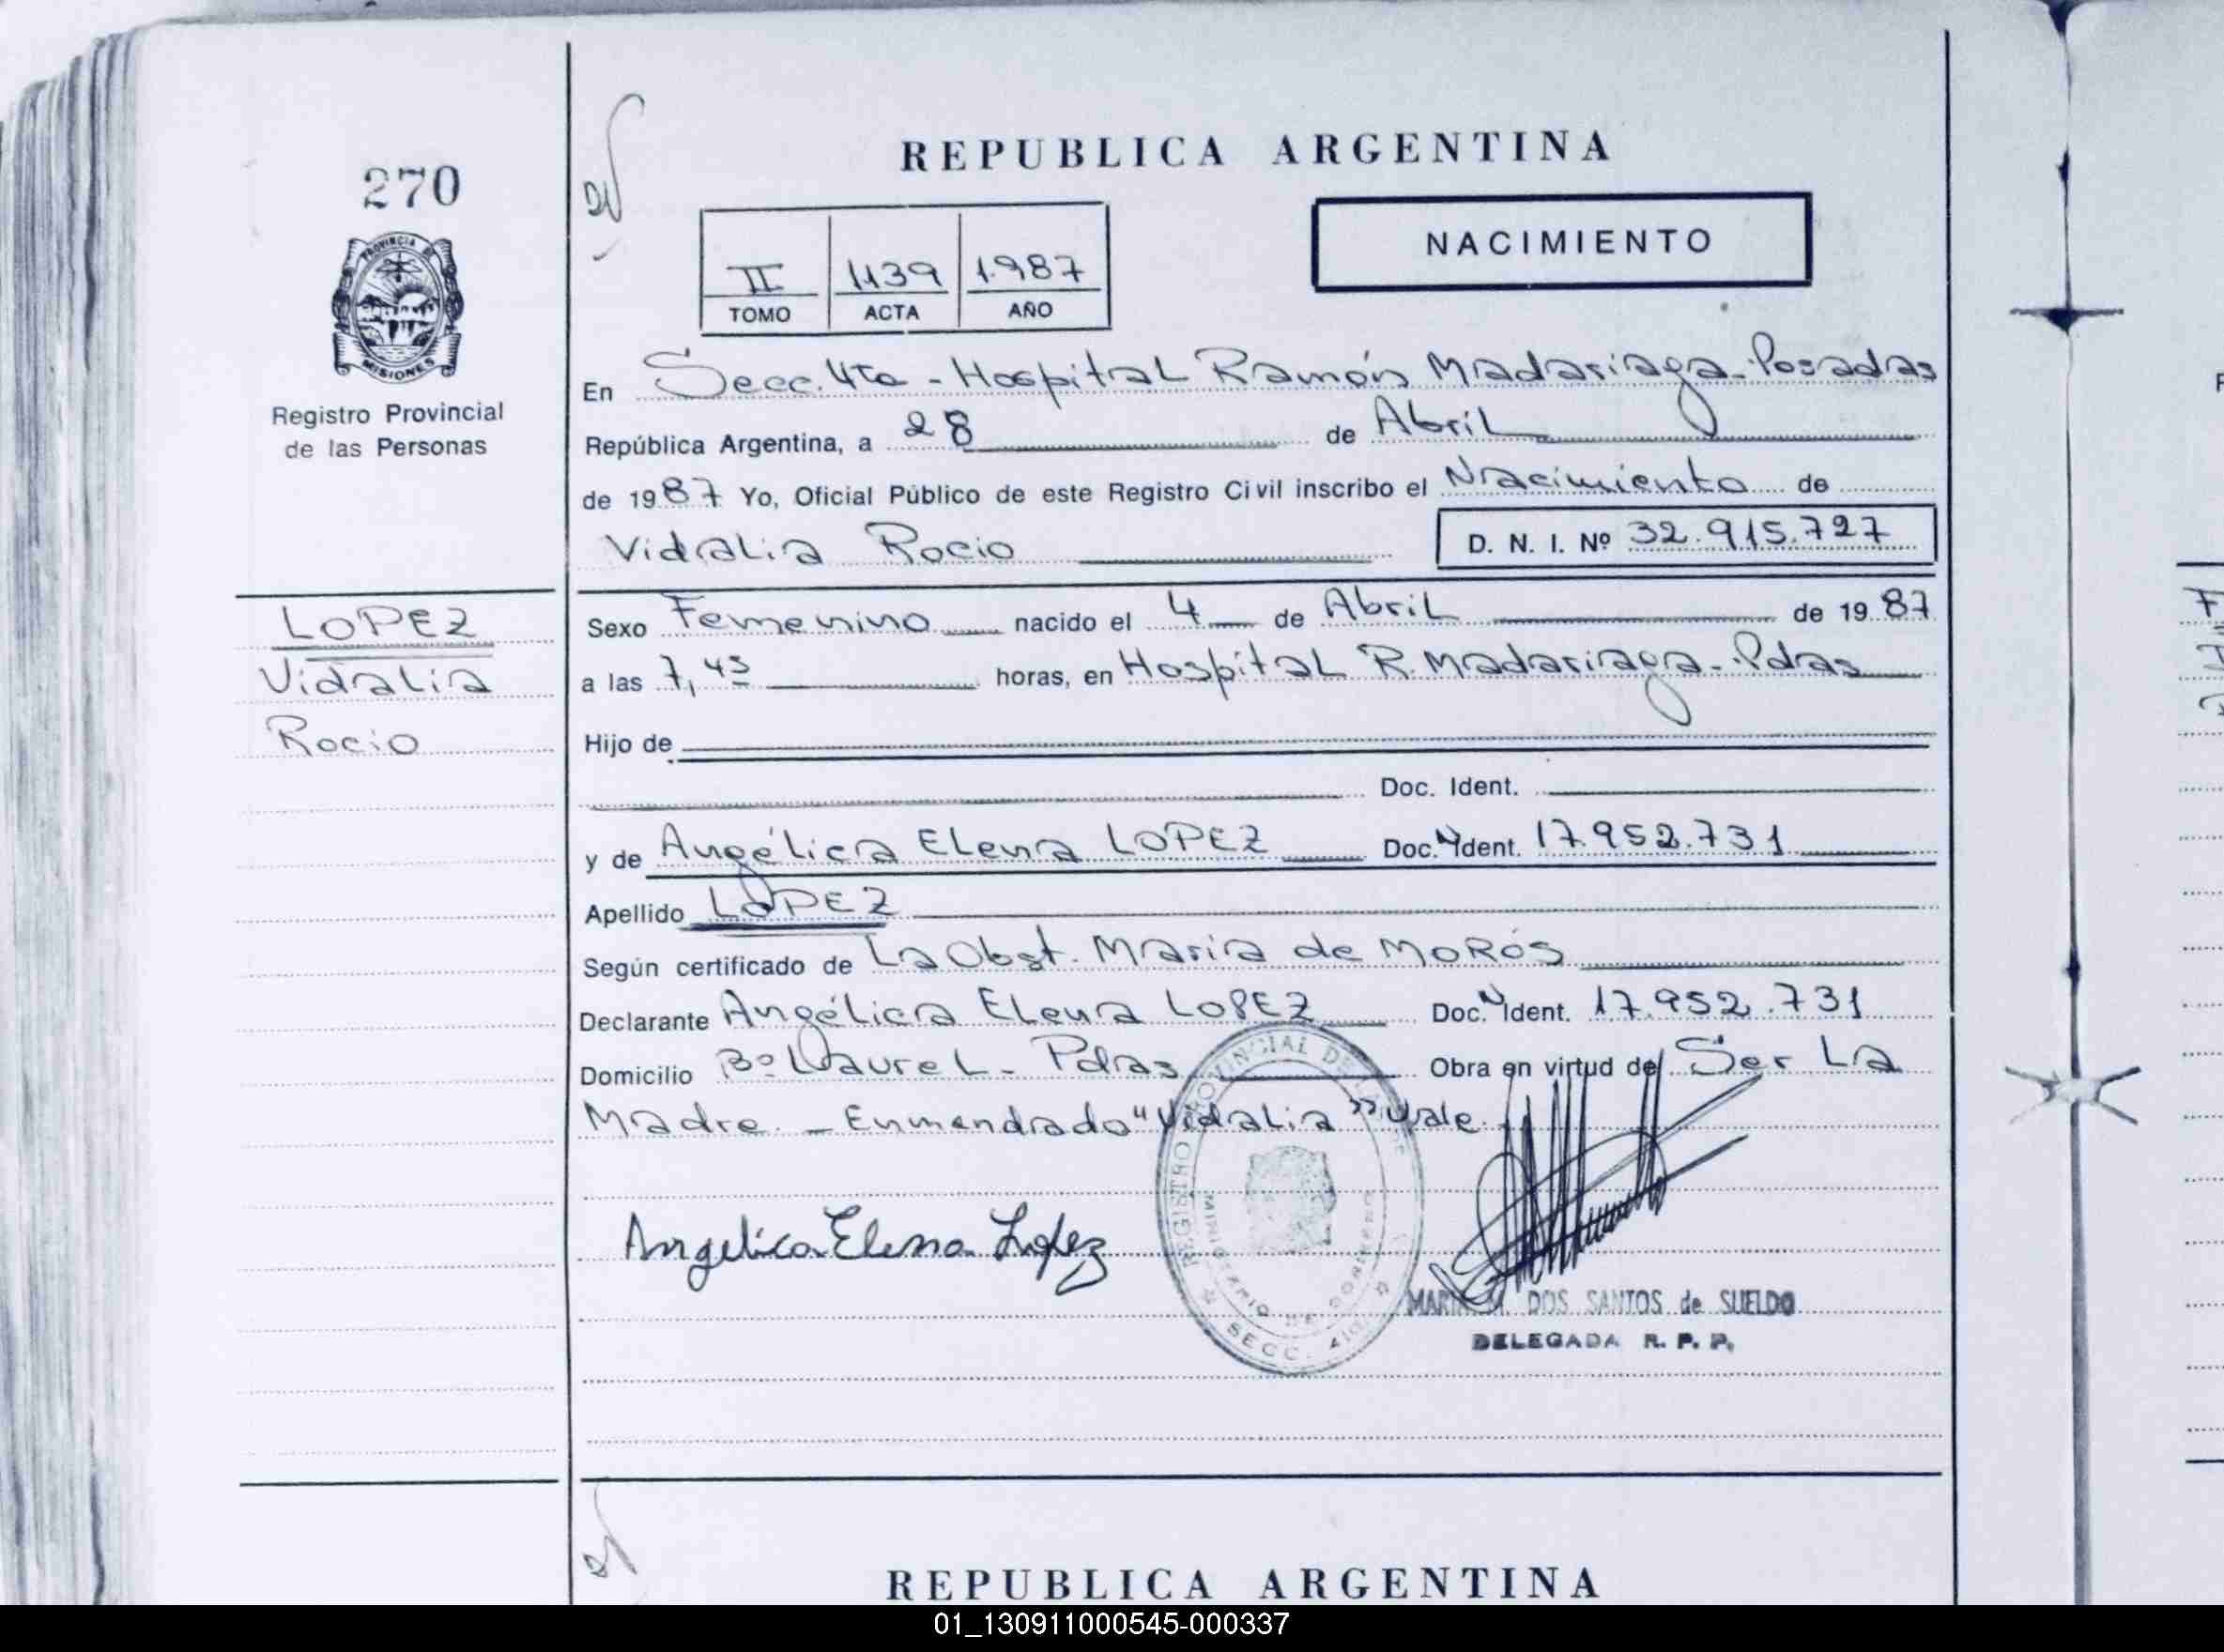 270
PROVINCIA DE
MISIONES
Registro Provincial
de las Personas
LOPEZ
Vidalia
Rocio
REPUBLICA ARGENTINA
NACIMIENTO
II 1139 1.987
TOMO ACTA AÑO
En Secc. 4ta - Hospital Ramón Madariaga - Posadas
República Argentina, a 28 de Abril
de 1987 Yo, Oficial Público de este Registro Civil inscribo el Nacimiento de
Vidalia Rocio D. N. I. Nº 32.915.727
Sexo Femenino nacido el 4 de Abril de 1987
a las 7,45 horas, en Hospital R. Madariaga - Pdas
Hijo de
Doc. Ident.
y de Angélica Elena LOPEZ Doc. Ident. 17.952.731
Apellido LOPEZ
Según certificado de La Obst. Maria de MORÓS
Declarante Angélica Elena LOPEZ Doc. Ident. 17.952.731
Domicilio Bº Laurel - Pdas Obra en virtud de Ser La
Madre. - Enmendado "Vidalia" Vale.
Angelica Elena Lopez
REGISTRO PROVINCIAL DE
MINISTERIO DE GOBIERNO
SECC. 4ta
MARIA M. DOS SANTOS de SUELDO
DELEGADA R. P. P.
REPUBLICA ARGENTINA
01_130911000545-000337